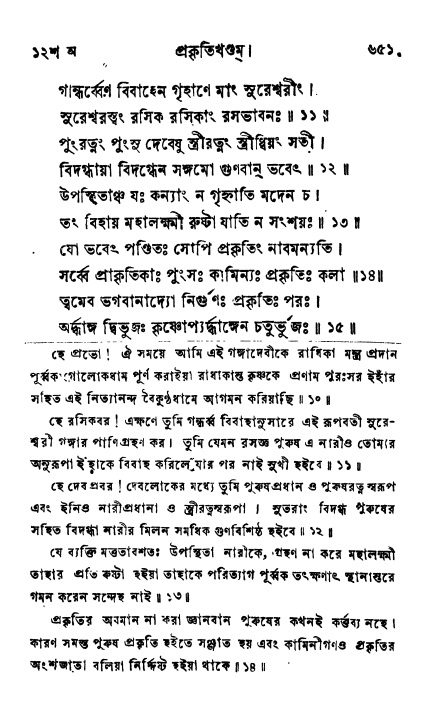 ১২শ অ প্রকৃতিখণ্ডম্। ৬৫১
গান্ধর্ব্বেণ বিবাহেন গৃহাণে মাং সুরেশ্বরীং।
সুরেশ্বরস্ত্বং রসিক রসিকাং রসভাবনঃ॥ ১১॥
পুংরত্নং পুংসু দেবেষু স্ত্রীরত্নং স্ত্রীষ্বিয়ং সতী।
বিদগ্ধায়া বিদগ্ধেন সঙ্গমো গুণবান্ ভবেৎ॥ ১২॥
উপস্থিতাঞ্চ যঃ কন্যাং ন গৃহ্নাতি মদেন চ।
তং বিহায় মহালক্ষ্মী রুষ্টা যাতি ন সংশয়ঃ॥ ১৩॥
যো ভবেৎ পণ্ডিতঃ সোপি প্রকৃতিং নাবমন্যতি।
সর্ব্বে প্রাকৃতিকাঃ পুংসঃ কামিন্যঃ প্রকৃতিঃ কলা॥১৪॥
ত্বমেব ভগবানাদ্যো নির্গুণঃ প্রকৃতিঃ পরঃ।
অর্দ্ধাঙ্গ দ্বিভুজঃ কৃষ্ণোপ্যর্দ্ধাঙ্গেন চতুর্ভুজঃ॥ ১৫॥
হে প্রভো! ঐ সময়ে আমি এই গঙ্গাদেবীকে রাধিকা মন্ত্র প্রদান
পূর্ব্বক গোলোকধাম পূর্ণ করাইয়া রাধাকান্ত কৃষ্ণকে প্রণাম পুরঃসর ইহাঁর
সহিত এই নিত্যানন্দ বৈকুণ্ঠধামে আগমন করিয়াছি॥ ১০॥
হে রসিকবর! এক্ষণে তুমি গন্ধর্ব্ব বিবাহানুসারে এই রূপবতী সুরে-
শ্বরী গঙ্গার পাণিগ্রহণ কর। তুমি যেমন রসজ্ঞ পুরুষ এ নারীও তোমার
অনুরূপা ইহাঁকে বিবাহ করিলে যার পর নাই সুখী হইবে॥ ১১॥
হে দেবপ্রবর! দেবলোকের মধ্যে তুমি পুরুষপ্রধান ও পুরুষরত্ন স্বরূপ
এবং ইনিও নারীপ্রধানা ও স্ত্রীরত্নস্বরূপা। সুতরাং বিদগ্ধ পুরুষের
সহিত বিদগ্ধা নারীর মিলন সমধিক গুণবিশিষ্ঠ হইবে॥ ১২॥
যে ব্যক্তি মত্ততাবশতঃ উপস্থিতা নারীকে, গ্রহণ না করে মহালক্ষ্মী
তাহার প্রতি রুষ্টা হইয়া তাহাকে পরিত্যাগ পূর্ব্বক তৎক্ষণাৎ স্থানান্তরে
গমন করেন সন্দেহ নাই॥ ১৩॥
প্রকৃতির অবমান না করা জ্ঞানবান পুরুষের কখনই কর্ত্তব্য নহে।
কারণ সমস্ত পুরুষ প্রকৃতি হইতে সঞ্জাত হয় এবং কামিনীগণও প্রকৃতির
অংশজাতা বলিয়া নির্দ্দিষ্ট হইয়া থাকে॥ ১৪॥